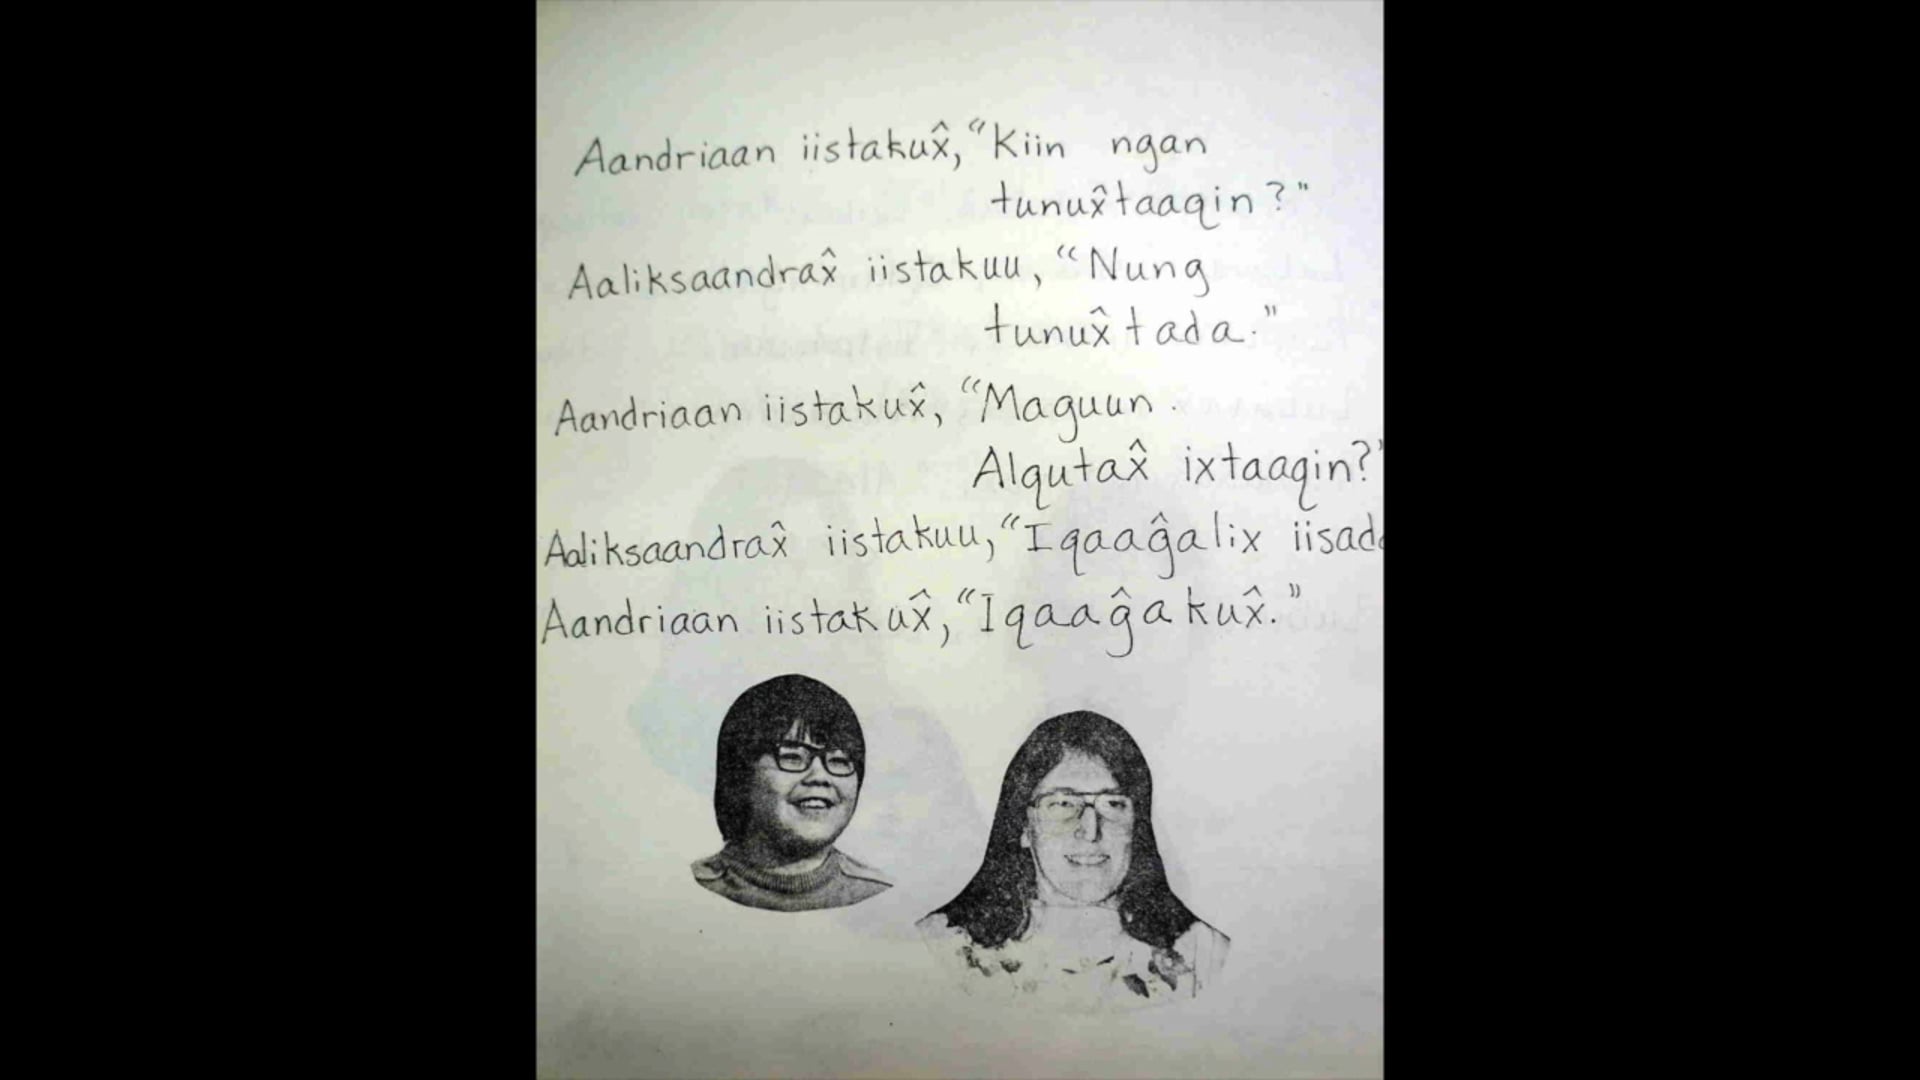 Aandriaan iistakux̂, “Kiin ngan
tunux̂taaqin?”
Aaliksaandrax̂ iistakuu, “Nung
tunux̂tada.”
Aandriaan iistakux̂, “Maguun
Alqutax̂ ixtaaqin?”
Aaliksaandrax̂ iistakuu, “Iqaaĝalix iisada
Aandriaan iistakux̂, “Iqaaĝakux̂.”